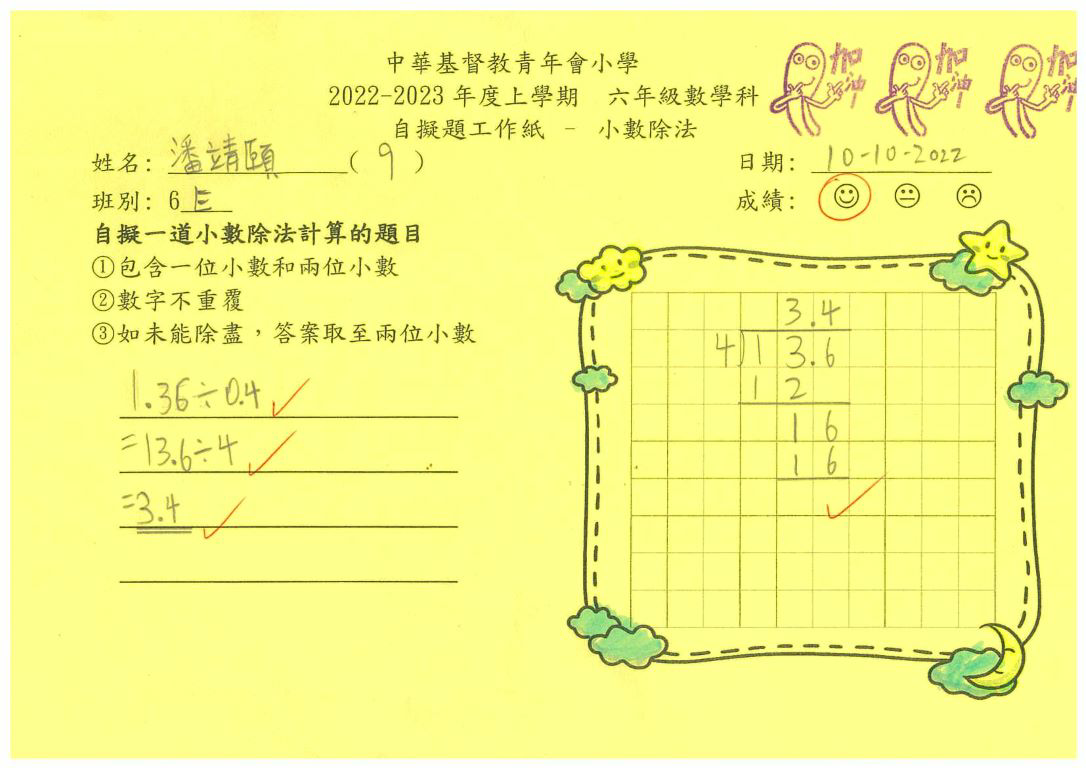 中華基督教青年會小學
2022-2023 年度上學期 六年級數學科
自擬題工作紙 - 小數除法
加油 加油 加油
姓名: 潘靖頤 ( 9 )
日期: 10-10-2022
班別: 6E
成績:
自擬一道小數除法計算的題目
①包含一位小數和兩位小數
②數字不重覆
③如未能除盡,答案取至兩位小數
1.36÷0.4
=13.6÷4
=3.4
3.4
4)13.6
12
16
16